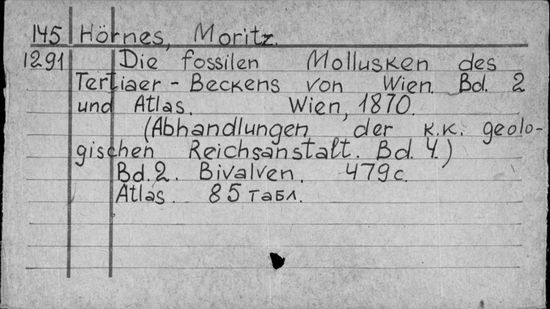 145 Hörnes, Moritz.
1291 Die fossilen Mollusken des
Tertiaer - Beckens von Wien. Bd. 2
und Atlas. Wien, 1870.
(Abhandlungen der к.к. geolo-
gischen Reichsanstalt. Bd. 4.)
Bd.2. Bivalven. 479 с.
Atlas. 85 табл.